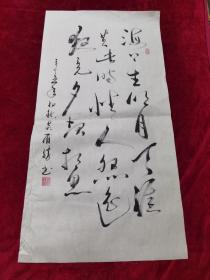 海上生明月天涯
共此時情人怨遥
夜竟夕起相思
年初秋 书